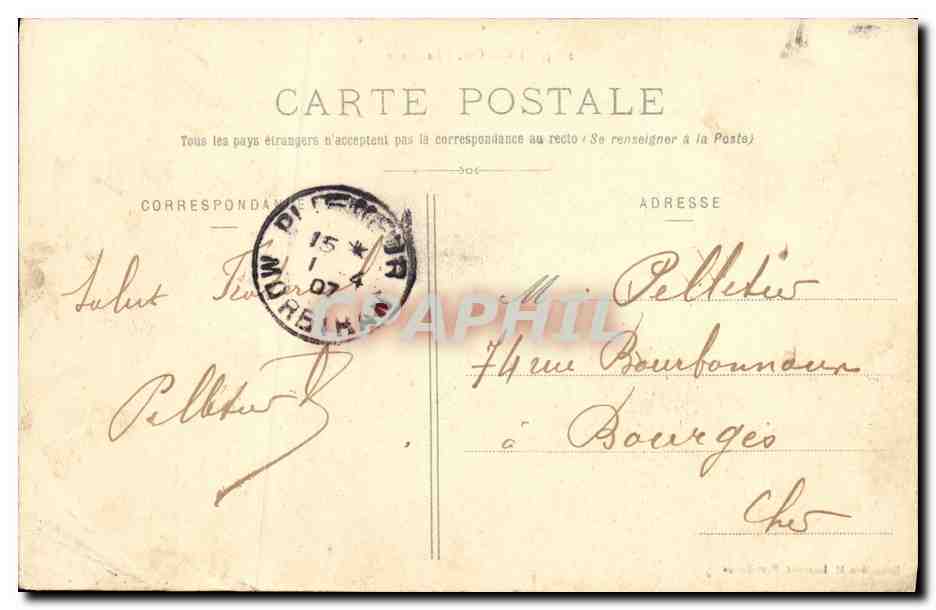 CARTE POSTALE
Tous les pays étrangers n'acceptent pas la correspondance au recto (Se renseigner à la Poste)
CORRESPONDANCE
ADRESSE
15 *
1 4
07
MORBIHAN
CPAPHIL
Salut
Pelletier
M. Pelletier
74 rue Bourbonnoux
à Bourges
Cher